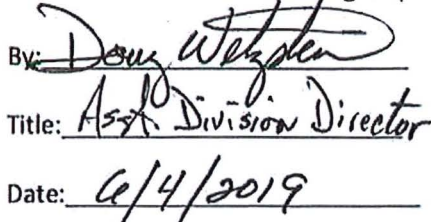 By: Doug
Title: Asst. Division Director
Date: 6/4/2019